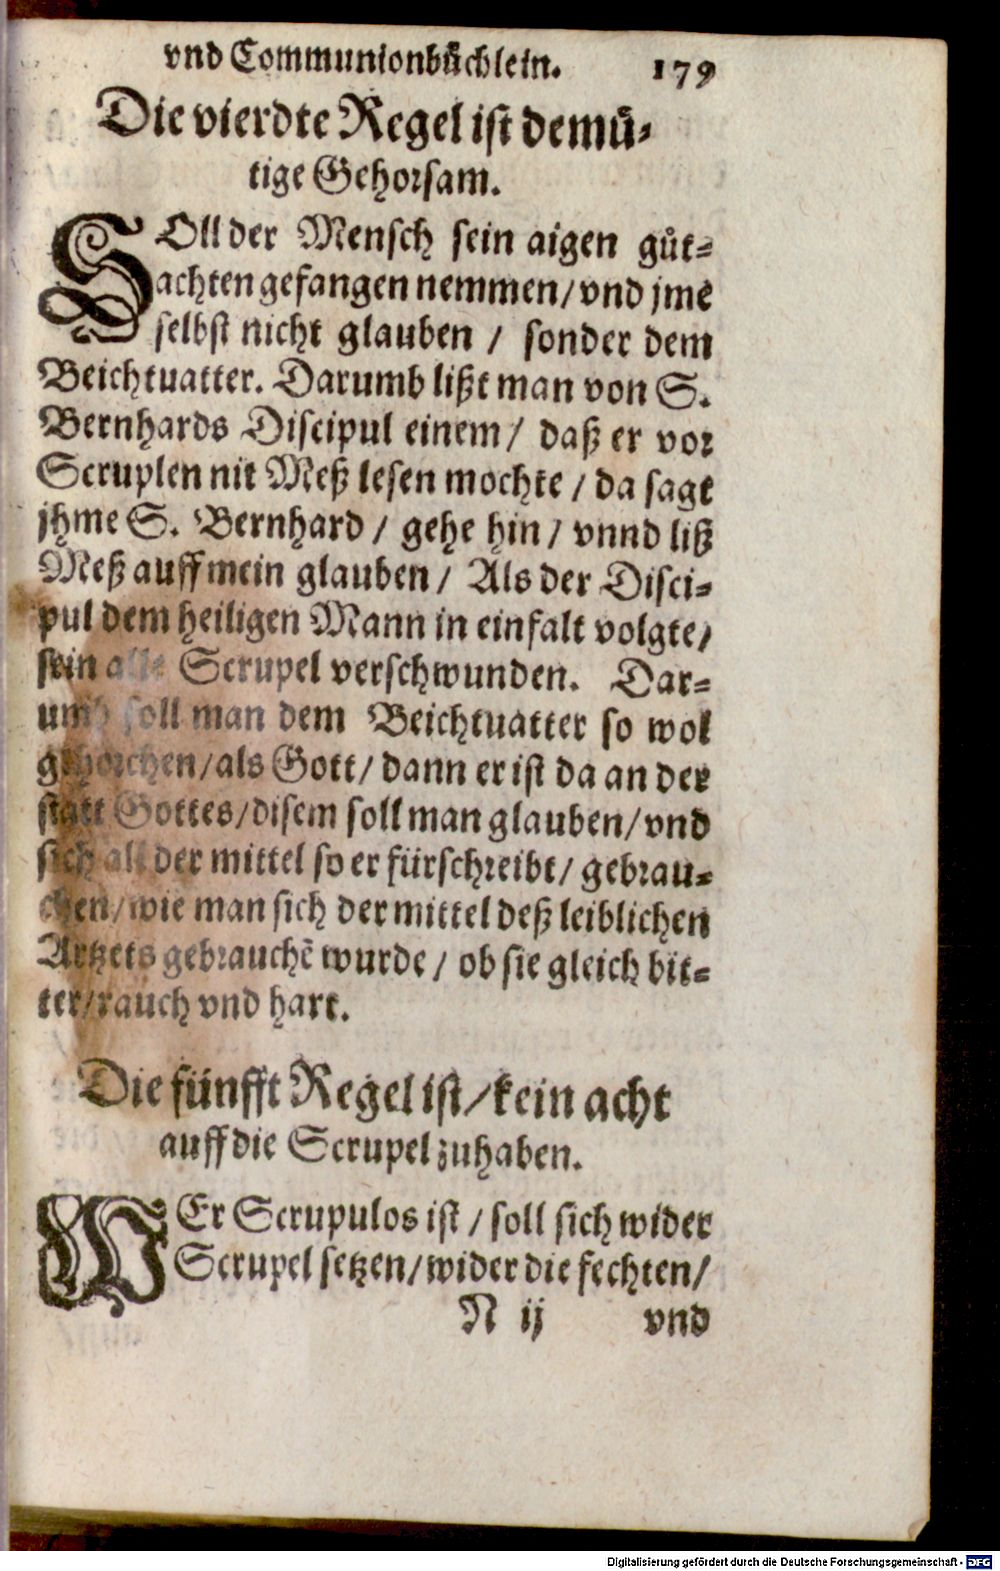 vnd Communionbuͤchlein. 179
Die vierdte Regel ist demuͤ-
tige Gehorsam.
SOll der Mensch sein aigen guͤt-
achten gefangen nemmen/ vnd jme
selbst nicht glauben / sonder dem
Beichtuatter. Darumb lißt man von S.
Bernhards Discipul einem/ daß er vor
Scruplen nit Meß lesen mochte / da sagt
jhme S. Bernhard / gehe hin / vnnd liß
Meß auff mein glauben / Als der Disci-
pul dem heiligen Mann in einfalt volgte/
sein alle Scrupel verschwunden. Dar-
umb soll man dem Beichtuatter so wol
gehorchen/als Gott/ dann er ist da an der
statt Gottes/disem soll man glauben/ vnd
sich all der mittel so er fürschreibt/ gebrau-
chen/wie man sich der mittel deß leiblichen
Artzets gebrauchẽ wurde / ob sie gleich bit-
ter/rauch vnd hart.
Die fünfft Regel ist/kein acht
auff die Scrupel zuhaben.
WEr Scrupulos ist / soll sich wider
Scrupel setzen/wider die fechten/
N ij vnd
Digitalisierung gefördert durch die Deutsche Forschungsgemeinschaft - DFG